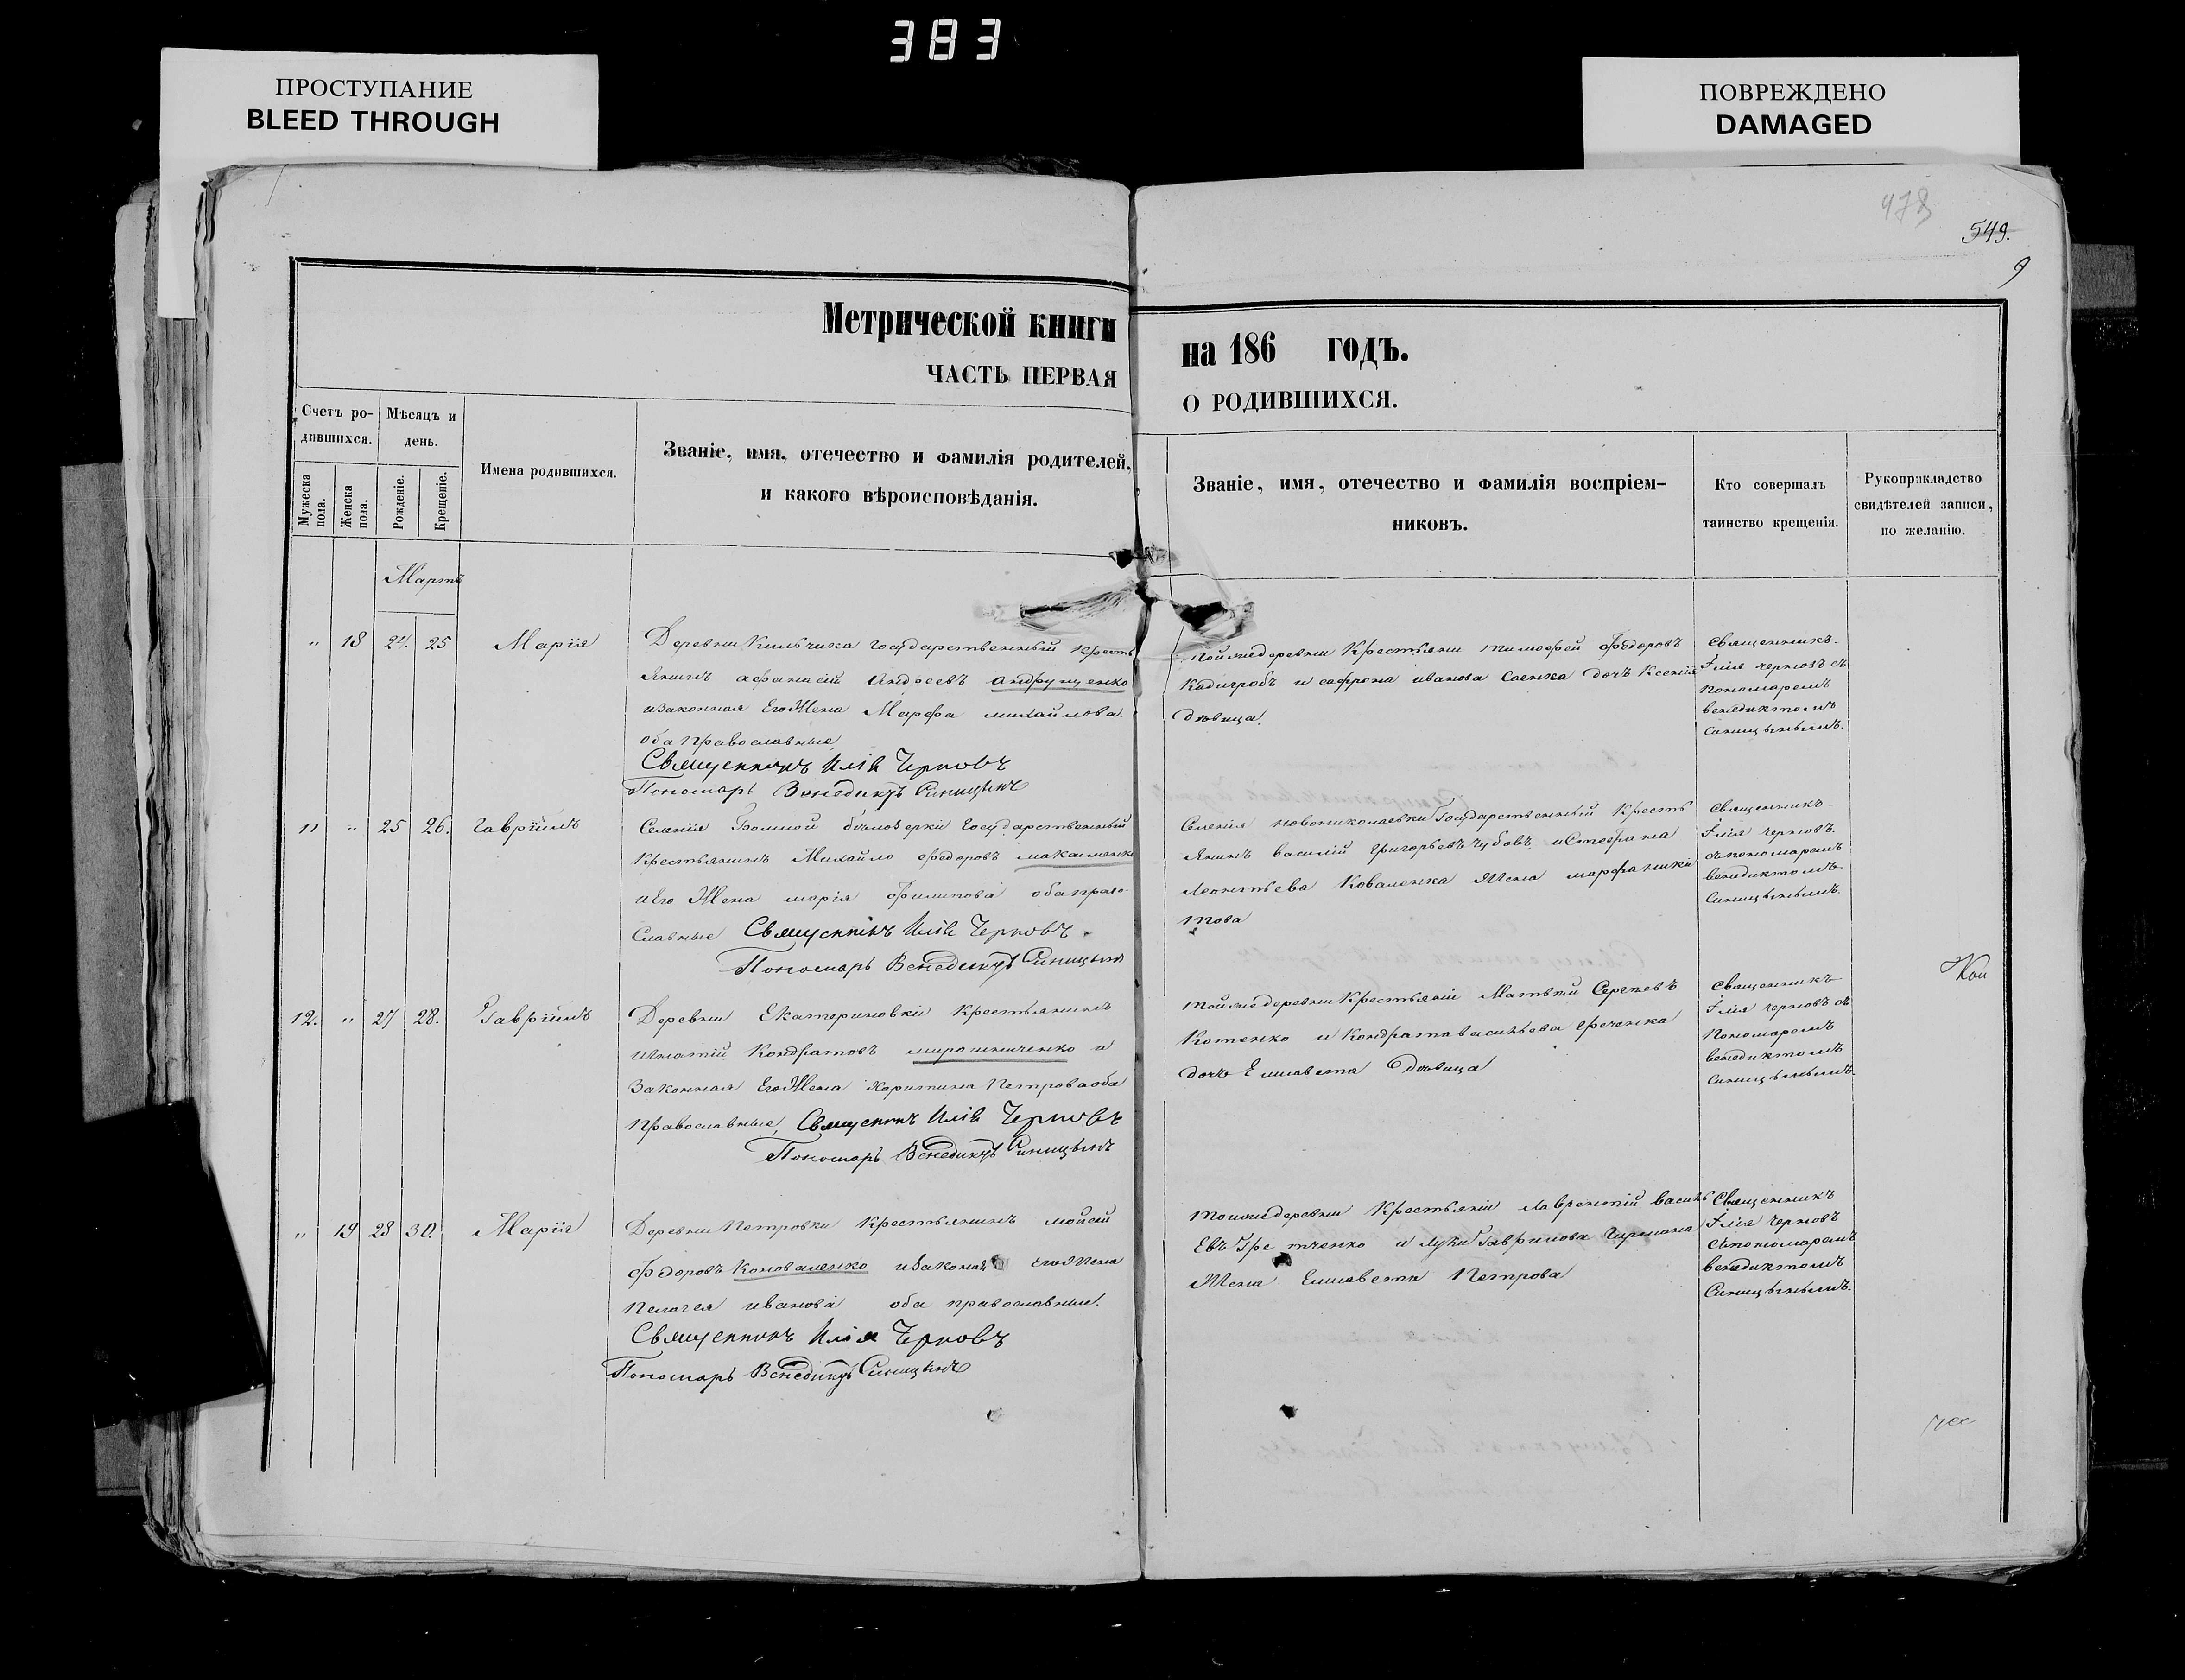 383
ПРОСТУПАНИЕ
BLEED THROUGH
ПОВРЕЖДЕНО
DAMAGED
478
549.
9
Метрической книги на 186 годъ.
ЧАСТЬ ПЕРВАЯ О РОДИВШИХСЯ.
Счетъ ро-
дившихся.
Мѣсяцъ и
день.
Мужеска
пола.
Женска
пола.
Рожденіе.
Крещеніе.
Имена родившихся.
Званіе, имя, отечество и фамилія родителей,
и какого вѣроисповѣданія.
Званіе, имя, отечество и фамилія воспріем-
никовъ.
Кто совершалъ
таинство крещенія.
Рукоприкладство
свидѣтелей записи,
по желанію.
Мартъ
" 18 24. 25 Марія
Деревни Кильчика государственный кресть
янинъ афанасій Андреевъ Андрущенко
изаконная Его Жена Марфа михайлова
оба православные
Священникъ Илія Черновъ
Пономарь Венедиктъ Синицынъ
тойже деревни Крестьяни тимофей Федоровъ
и сафрона иванова Саенка дочь Ксенія
дѣвица.
Священникъ
Ілія черновъ съ
пономаремъ
венедиктомъ
Синицынымъ.
11 " 25 26. Гавріилъ
Селенія государственный
Крестьянинъ Михайло федоровъ
иЕго Жена марія Филипова оба право
славные Священникъ Илія Черновъ
Пономарь Венедиктъ Синицынъ
Селенія новониколаевки Государственный Кресть
янинъ василій григорьевъ чубовъ иСтефана
Леонтьева Коваленка Жена марфа ники
това
Священникъ
Ілія черновъ
съпономаремъ
венедиктомъ
Синицынымъ.
12. " 27 28. Гавріилъ
Деревни Екатериновки Крестьянинъ
игнатій Кондратовъ мирошниченко и
Законная Его Жена Харитина Петрова оба
православные, Священникъ Илія Черновъ
Пономарь Венедиктъ Синицынъ
тойже деревни Крестьяни Матвѣй Сергѣевъ
Котенко и Кондрата васильева гречанка
дочь Елисавета дѣвица
Священникъ
Ілія черновъ съ
Пономаремъ
венедиктомъ
Синицынымъ.
" 19 28 30. Марія
Деревни Петровки Крестьянинъ мойсей
Федоровъ Коноваленко изаконая Его Жена
Пелагея иванова оба православные.
Священникъ Илія Черновъ
Пономарь Венедиктъ Синицынъ
тойже деревни Крестьяни лаврентій василь
Евъ и луки Гаврилова
Жена Елисавета Петрова
Священникъ
Ілія черновъ
съпономаремъ
венедиктомъ
Синицынымъ.